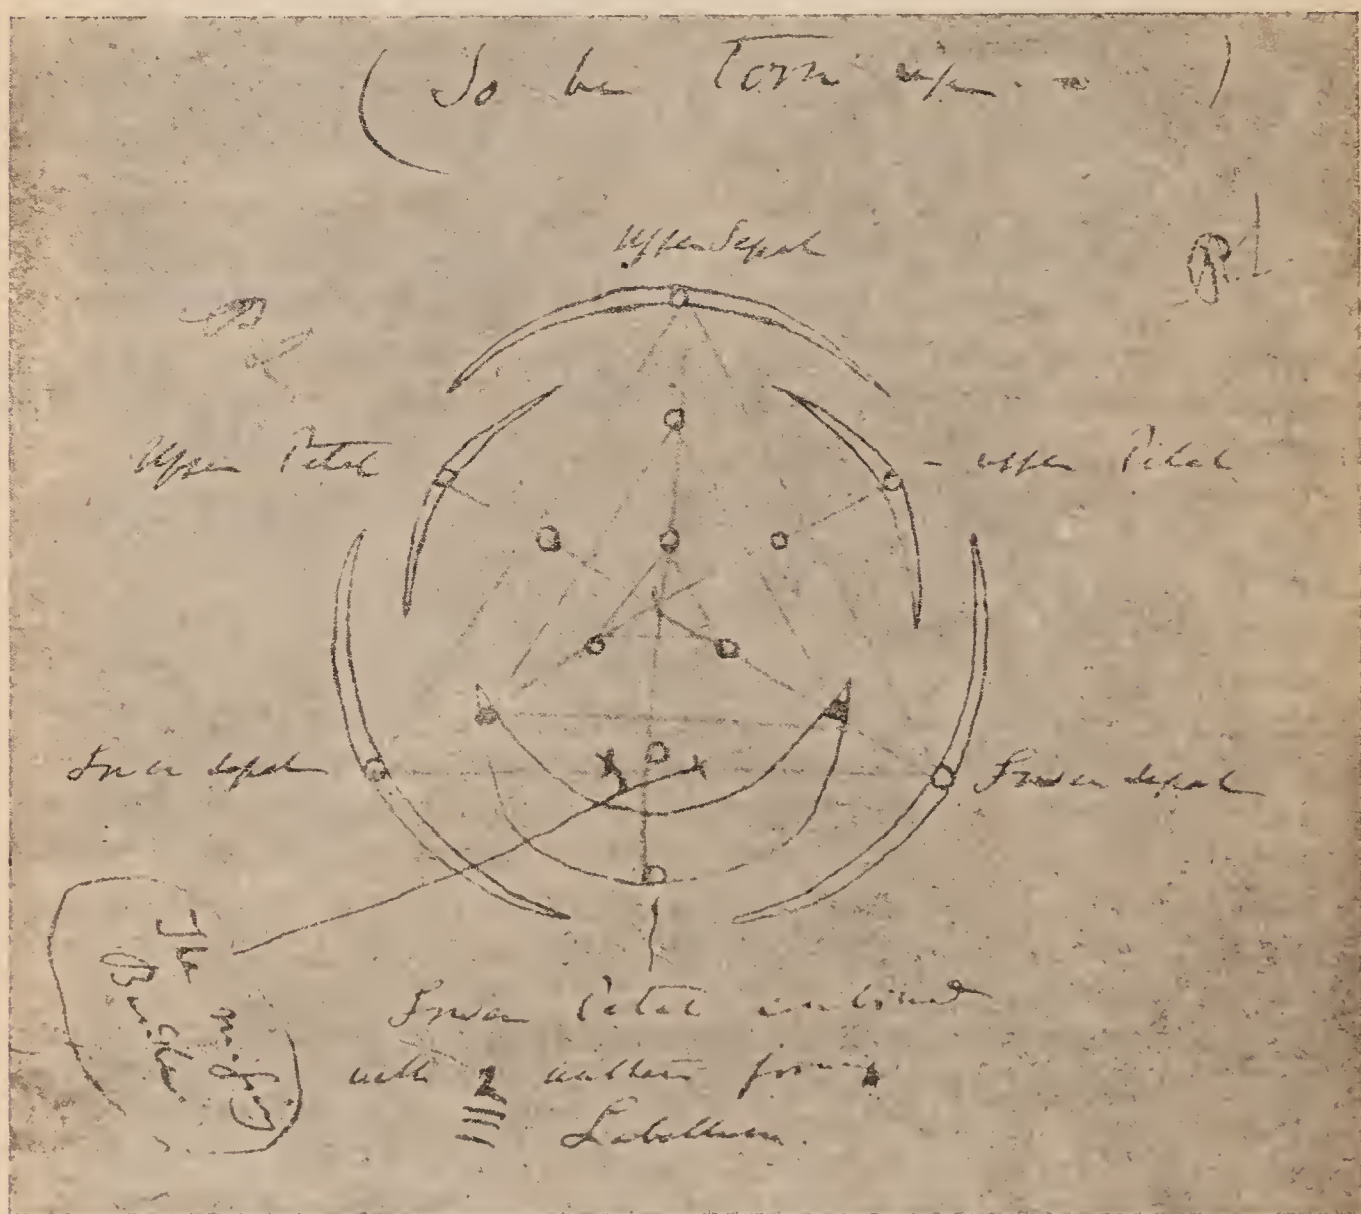 (To be Torn up.)
Upper Sepal
Upper Petal
- upper Petal
Lower Sepal
Lower Sepal
Lower Petal combined
with 2 anthers forming
Labellum.
The